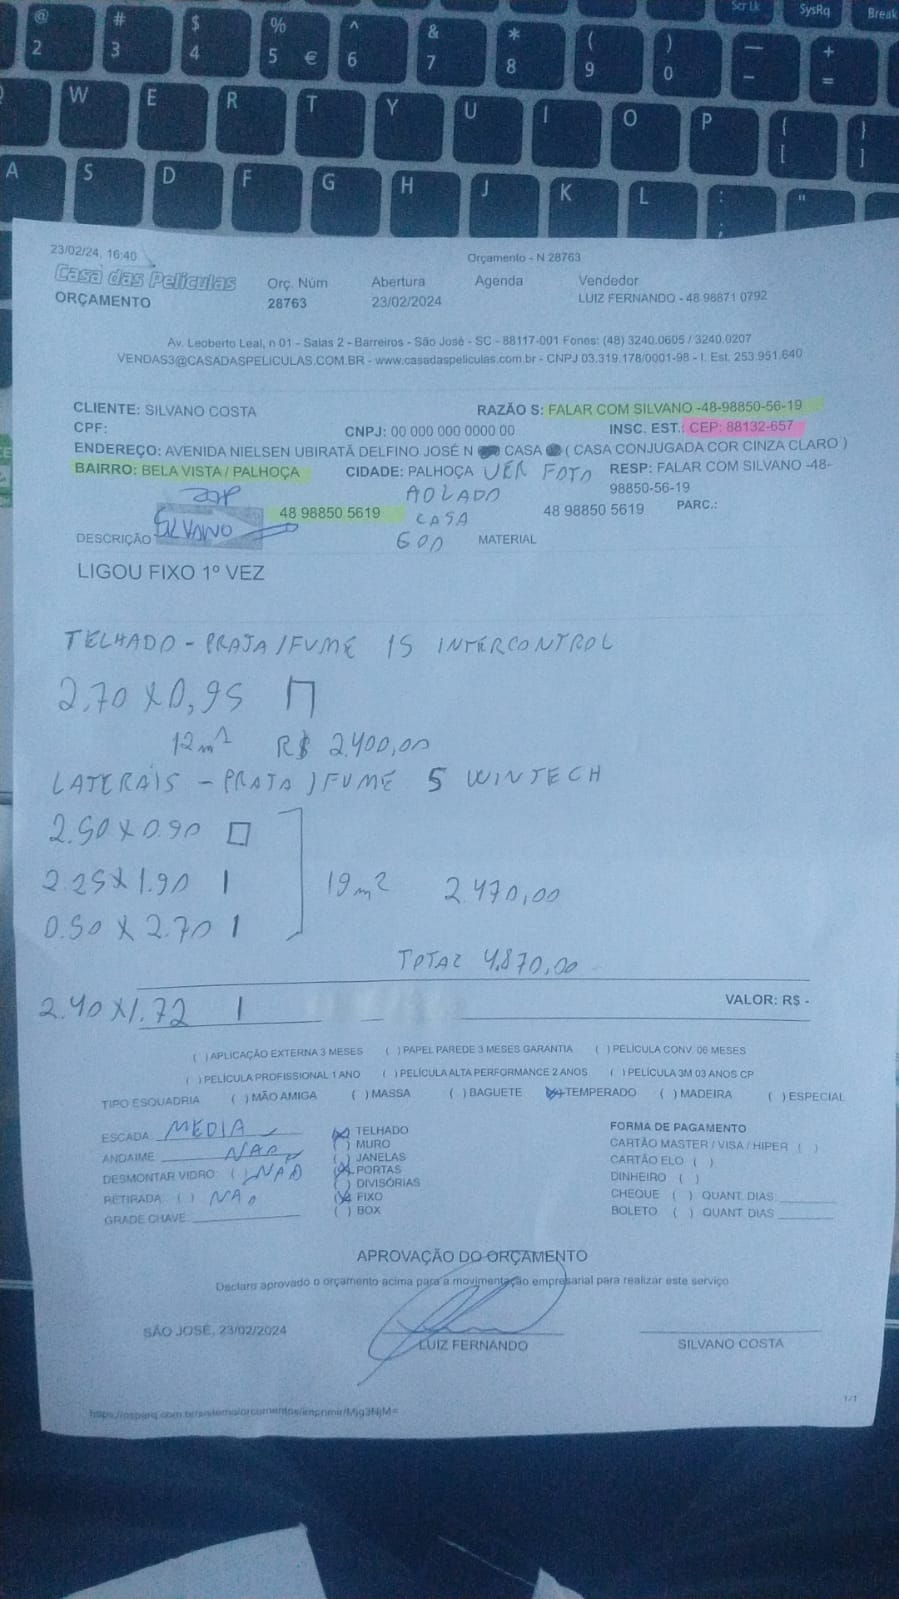 Scr Lk SysRq Break
@ # $ % ^ & * ( ) — +
2 3 4 5 € 6 7 8 9 0 - =
W E R T Y U I O P { }
[ ]
A S D F G H J K L : "
;
23/02/24, 16:40 Orçamento - N 28763
Casa das Películas Orç. Núm Abertura Agenda Vendedor
ORÇAMENTO 28763 23/02/2024 LUIZ FERNANDO - 48 98871 0792
Av. Leoberto Leal, n 01 - Salas 2 - Barreiros - São José - SC - 88117-001 Fones: (48) 3240.0605 / 3240.0207
VENDAS3@CASADASPELICULAS.COM.BR - www.casadaspeliculas.com.br - CNPJ 03.319.178/0001-98 - I. Est. 253.951.640
CLIENTE: SILVANO COSTA RAZÃO S: FALAR COM SILVANO -48-98850-56-19
CPF: CNPJ: 00 000 000 0000 00 INSC. EST.: CEP: 88132-657
ENDEREÇO: AVENIDA NIELSEN UBIRATÃ DELFINO JOSÉ N CASA ( CASA CONJUGADA COR CINZA CLARO )
BAIRRO: BELA VISTA / PALHOÇA CIDADE: PALHOÇA VER FOTO RESP: FALAR COM SILVANO -48-
98850-56-19
AO LADO
48 98850 5619 CASA 48 98850 5619 PARC.:
SILVANO
DESCRIÇÃO 600 MATERIAL
LIGOU FIXO 1º VEZ
TELHADO - PRATA/FUME 15 INTERCONTROL
2,70 X 0,95
12m² R$ 2.400,00
LATERAIS - PRATA/FUME 5 WINTECH
2.50 X 0.90
2.25 X 1.90 19m² 2.470,00
0.50 X 2.70
TOTAL 4.870,00
2.40 X 1.72 VALOR: R$ -
( )APLICAÇÃO EXTERNA 3 MESES ( )PAPEL PAREDE 3 MESES GARANTIA ( )PELÍCULA CONV. 06 MESES
( )PELÍCULA PROFISSIONAL 1 ANO ( )PELÍCULA ALTA PERFORMANCE 2 ANOS ( )PELÍCULA 3M 03 ANOS CP
TIPO ESQUADRIA ( )MÃO AMIGA ( )MASSA ( )BAGUETE (X)TEMPERADO ( )MADEIRA ( )ESPECIAL
ESCADA MEDIA (X)TELHADO FORMA DE PAGAMENTO
( )MURO CARTÃO MASTER / VISA / HIPER ( )
ANDAIME NAO ( )JANELAS CARTÃO ELO ( )
DESMONTAR VIDRO: ( ) NAO (X)PORTAS DINHEIRO ( )
( )DIVISÓRIAS
RETIRADA: ( ) NAO (X)FIXO CHEQUE ( ) QUANT. DIAS:
GRADE CHAVE: ( )BOX BOLETO ( ) QUANT. DIAS
APROVAÇÃO DO ORÇAMENTO
Declaro aprovado o orçamento acima para a movimentação empresarial para realizar este serviço
SÃO JOSÉ, 23/02/2024 LUIZ FERNANDO SILVANO COSTA
1/1